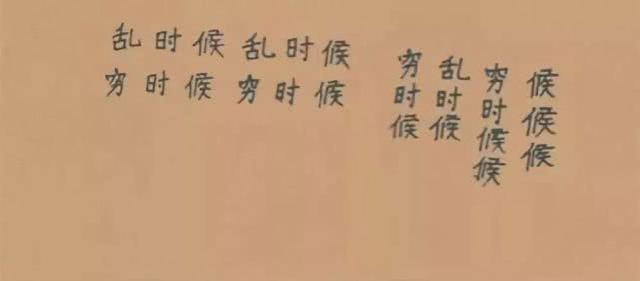 乱时候 乱时候
穷时候 穷时候
穷时候
乱时候
穷时候候
候候候